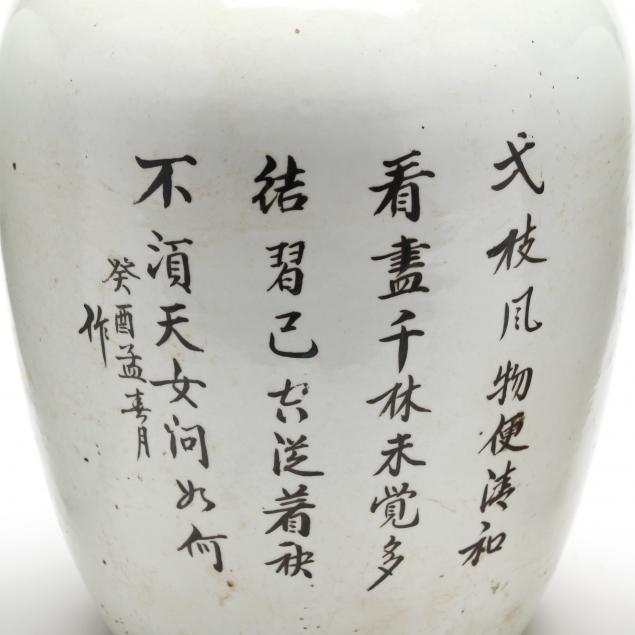 弌枝风物便清和
看盡千林未覺多
结習已空從着袂
不湏天女问如何
癸酉孟春月
作